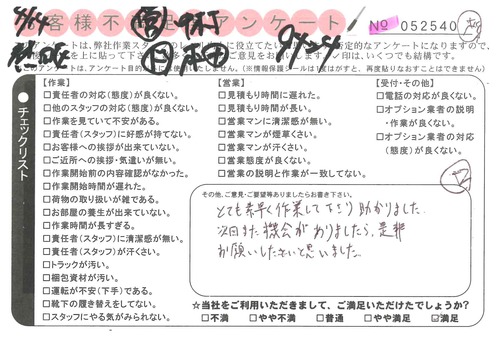 お客様不満足アンケート
No 052540
【作業】
□責任者の対応(態度)が良くない。
□他のスタッフの対応(態度)が良くない。
□作業を見ていて不安がある。
□責任者(スタッフ)に好感が持てない。
□お客様への挨拶が出来ていない。
□ご近所への挨拶・気遣いが無い。
□作業開始前の内容確認がなかった。
□作業開始時間が遅れた。
□荷物の取り扱いが雑である。
□お部屋の養生が出来ていない。
□作業時間が長すぎる。
□責任者(スタッフ)に清潔感が無い。
□責任者(スタッフ)が汗くさい。
□トラックが汚い。
□梱包資材が汚い。
□運転が不安(下手)である。
□靴下の履き替えをしてない。
□スタッフにやる気がみられない。
【営業】
□見積もり時間に遅れた。
□見積もり時間が長い。
□営業マンに清潔感が無い。
□営業マンが煙草くさい。
□営業マンが汗くさい。
□営業態度が良くない。
□営業の説明と作業が一致してない。
【受付・その他】
□電話の対応が良くない。
□オプション業者の説明
・作業が良くない。
□オプション業者の対応
(態度)が良くない。
チェックリスト
その他、ご意見・ご要望等ありましたらお書き下さい。
とても素早く作業して下さり助かりました。
次回また機会がありましたら、是非
お願いしたいと思いました。
☆当社をご利用いただきまして、ご満足いただけたでしょうか?
□不満 □やや不満 □普通 □やや満足 ☑満足